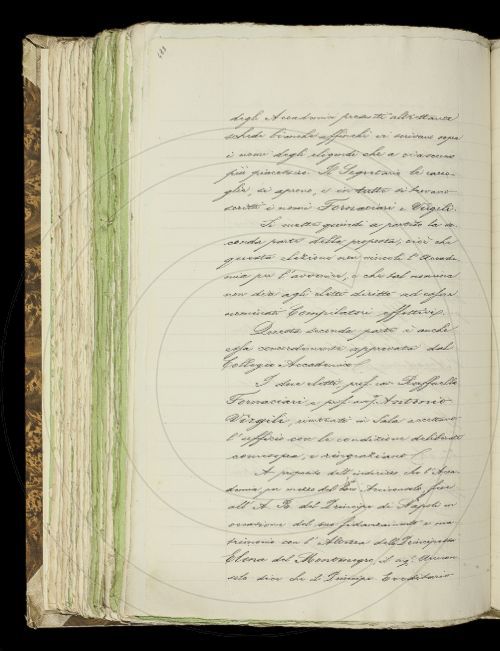 degli Accademici presenti altrettante
schede bianche affinchè vi scrivano sopra
i nomi degli eligendi che a ciascuno
più piacessero. Il Segretario le racco-
glie, si aprono, e in tutte si trovano
scritti i nomi Fornaciari e Virgili.
Si mette quindi a partito la se-
conda parte della proposta, cioè che
questa elezione non vincoli l'Accade-
mia per l'avvenire, e che tal nomina
non dia agli eletti diritto ad esser
nominati Compilatori effettivi.
Questa seconda parte è anche
essa concordemente approvata dal
Collegio Accademico.
I due eletti, prof. Raffaello
Fornaciari e prof. Antonio
Virgili, rientrati in Sala accettano
l'ufficio con le condizioni deliberate
e ringraziano.
A proposito dell'indirizzo che l'Acca-
demia per mezzo del
all'A. R. del Principe di Napoli in
occasione del suo fidanzamento e ma-
trimonio con l'Altezza della Principessa
Elena del Montenegro, il
dice che il Principe Ereditario